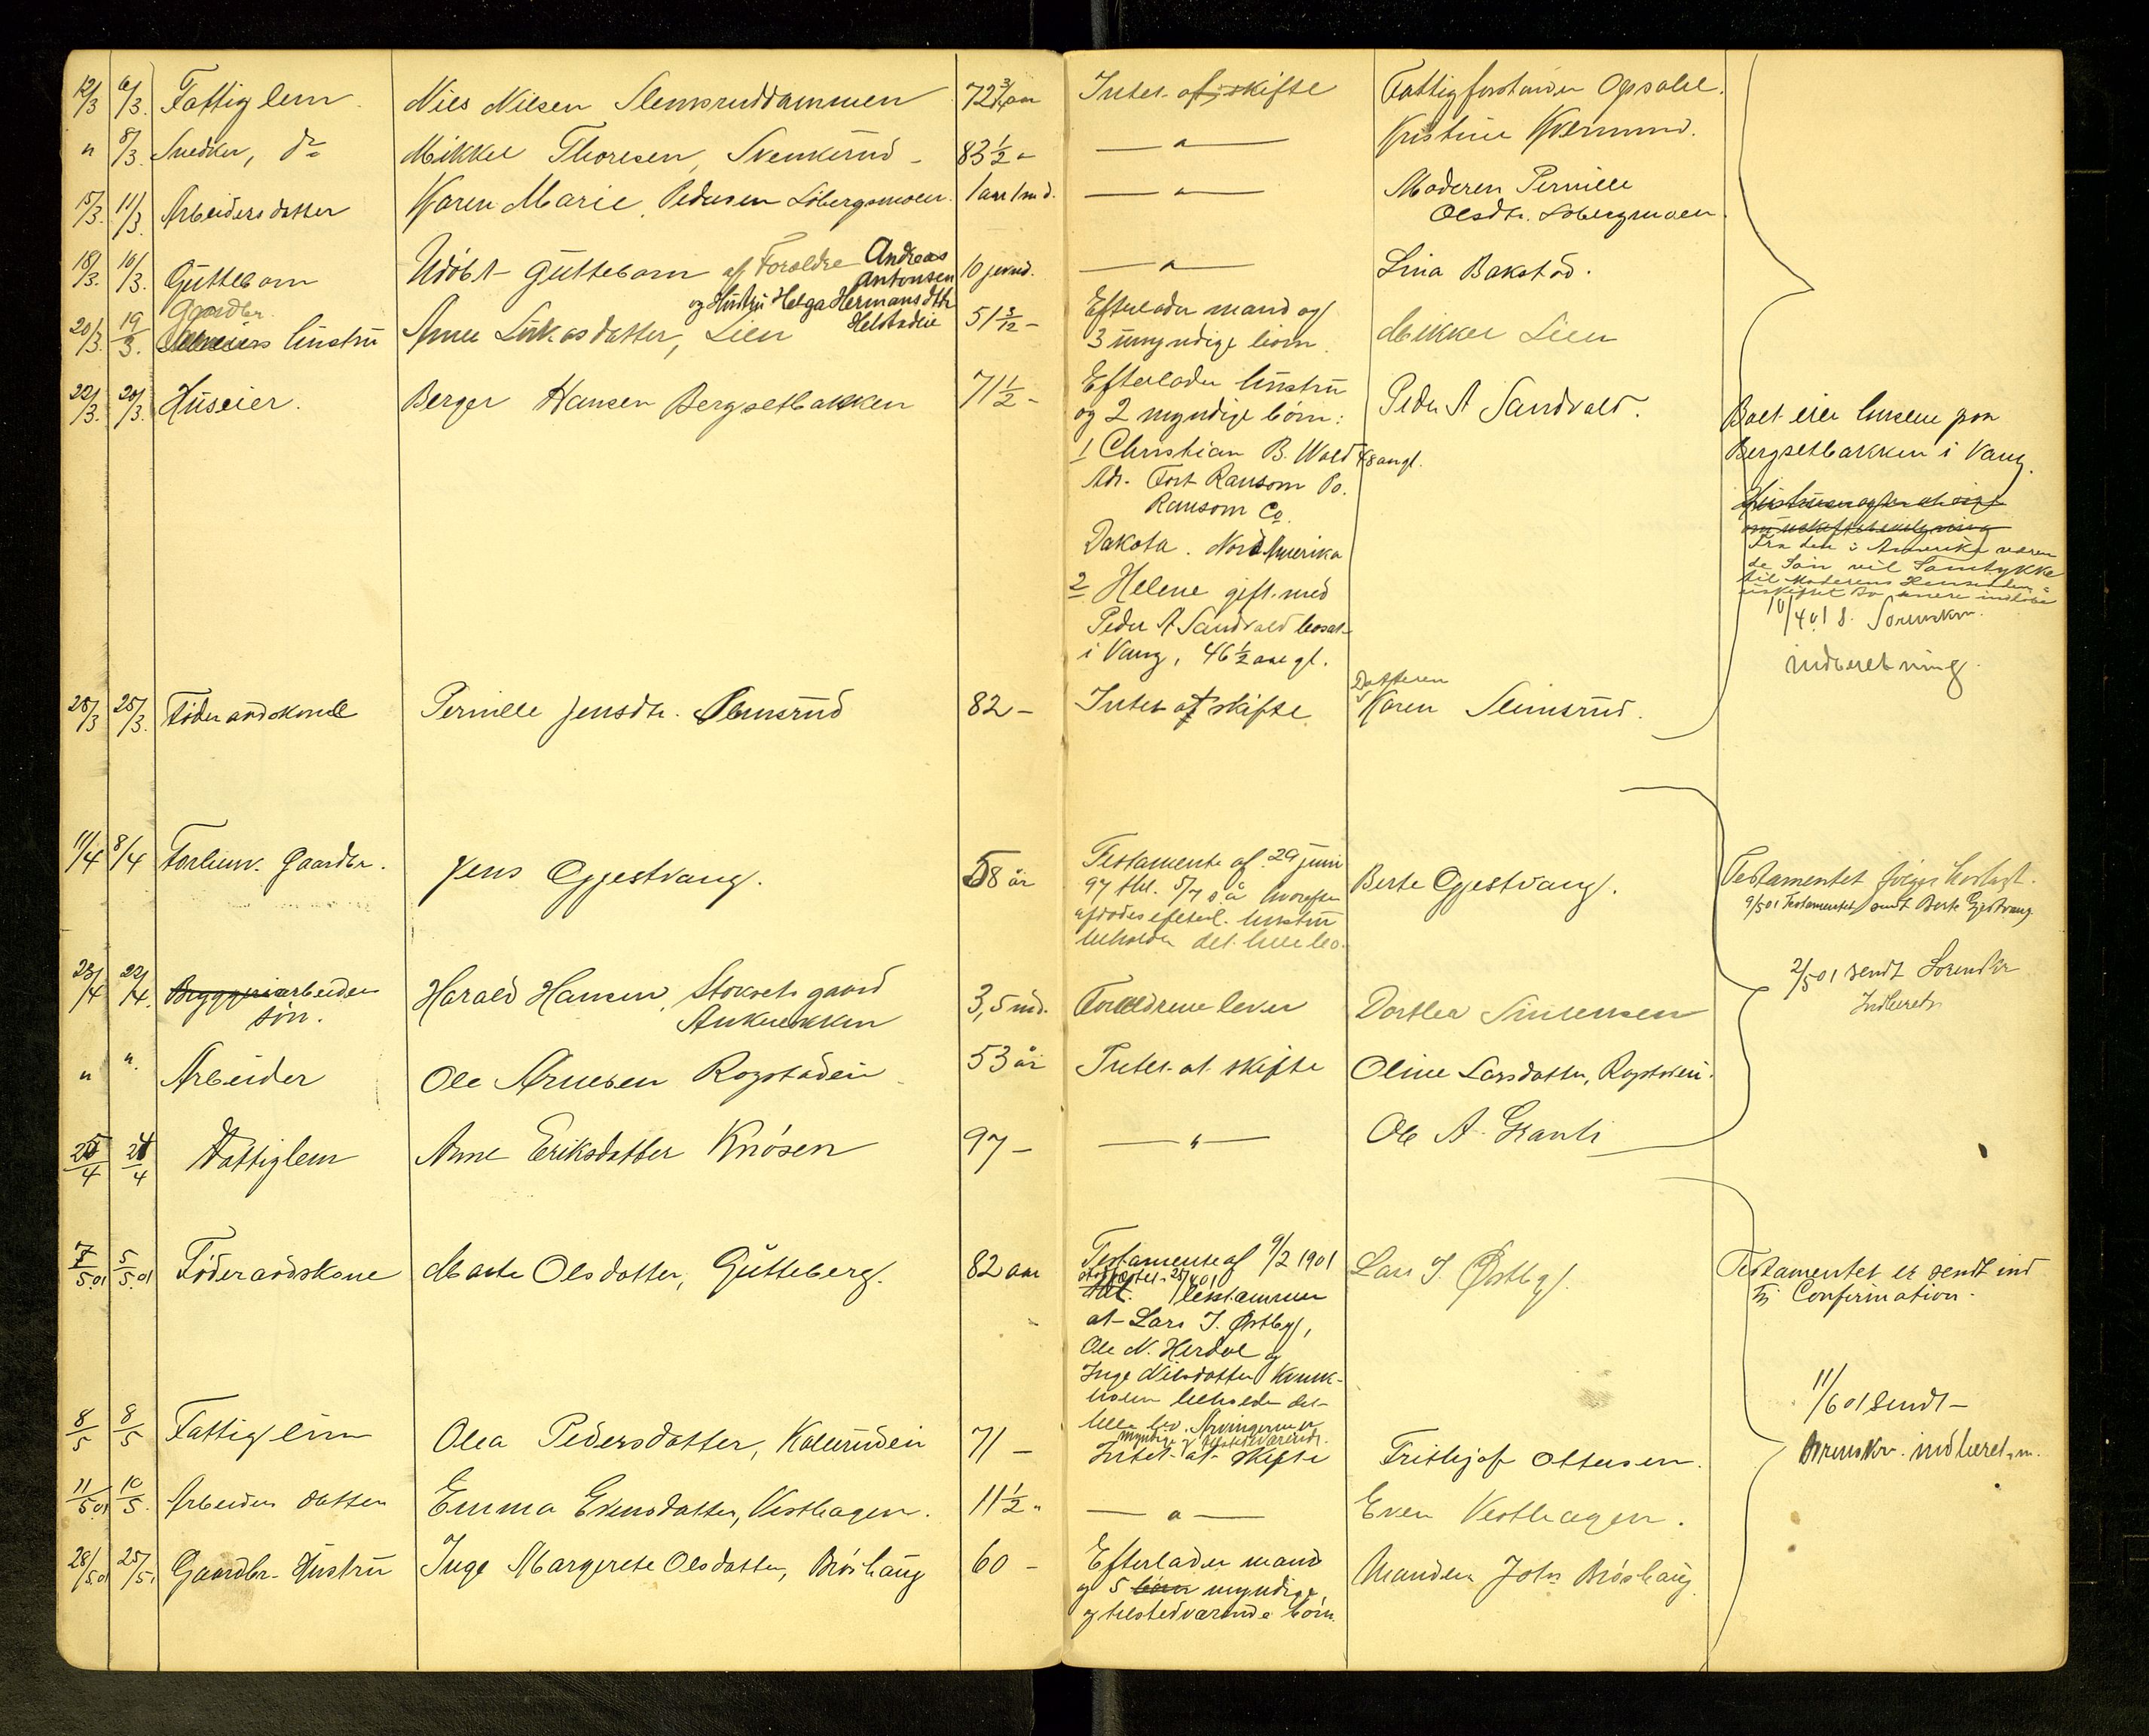 12/3 6/3. Fattiglem. Niels Nilsen Slemsruddammen 72 3/4 aar Intet at skifte Fattigforstander Opsahl.
" 8/3. Snedker, do Mikkel Thoresen, Svenkerud - 83 1/2 " — " — Kristine Kværnmo.
15/3. 11/3. Arbeidersdatter Karen Marie Pedersen Löbergsmoen. 1 aar 1 md. — " — Moderen Pernille
Olsdtr. Löbergsmoen.
18/3. 16/3. Guttebarn Udöbt Guttebarn af Forældre Andreas
Antonsen 10 — " — Lina Bakstad.
og Hustru Helga Hermansdtr
Helstadeie
Gaardbr.
20/3. 19/3. hustru Anne Lukasdatter, Lien 51 3/12 - Efterlader mand og
3 umyndige börn. Mikkel Lien
22/3. 20/3. Huseier. Berger Hansen Bergsetbakken 71 1/2 - Efterlader hustru
og 2 myndige börn: Peder A Sandvold.
1 Christian B. Wold 48 aar gl.
Adr. Fort Ransom Po.
Ransom Co.
Dakota. Nord Amerika
2 Helene gift med
Peder A Sandvold bosat
i Vang, 46 1/2 aar gl.
Boet eier husene paa
Bergsetbakken i Vang.
Fra den i Amerika væren
de Sön vil Samtykke
til Moderens Hensidden i
uskiftet Bo senere indløbe
10/4 01 S. Sorenskr.
indberetning.
28/3 25/3. Föderaadskone Pernille Jensdtr. Slemsrud 82 - Intet at skifte Datteren
Karen Slemsrud.
11/4 8/4 Forhenv. Gaardbr. Jens Gjestvang. 58 år Testamente af 29 juni
97 thl. 5/7 s.å hvorefter
afdödes efterl. hustru
beholder det hele bo. Berte Gjestvang.
Testamentet følger hoslagt.
9/5 01 Testamentet sendt Berte Gjestvang
23/4 22/4. Bryggeriarbeider
sön. Harald Hansen, Stokset gaard
3,5 md. Forældrene lever Dorthea Simensen
2/5 01 sendt Sorenskr
Indberetn.
" ". Arbeider Ole Arnesen Rogstadeie 53 år Intet at skifte Oline Larsdatter, Rogstadeie.
25/4 24/4 Fattiglem Anne Eriksdatter Knösen 97 - — " — Ole A. Granli
7/5 01 5/5 01 Föderaadskone Marte Olsdatter, Gutteberg. 82 aar Testamente af 9/2 1901
25/4 01
at Lars J. Østby,
Ole N. Herdal og
Inge Nilsdatter Kvæk-
beholder det
hele bo. Arvingerne er
myndige og tilstedværende.
Lars J. Østby.
Testamentet er sendt ind
til Confirmation.
8/5 8/5 Fattiglem Olea Pedersdatter, Kolerudeie 71 - Intet at skifte Frithjof Ottersen.
11/6 01 Sendt
Sorenskr. indberetn.
11/5 01 10/5. Arbeiders datter Emma Evensdatter, Vesthagen. 11 1/2 " — " — Even Vesthagen.
28/5 01 25/5. Gaardbr. Hustru Inge Margrete Olsdatter, Bröshaug 60 - Efterlader mand
og 5 börn myndige
og tilstedværende börn. Manden John Bröshaug.